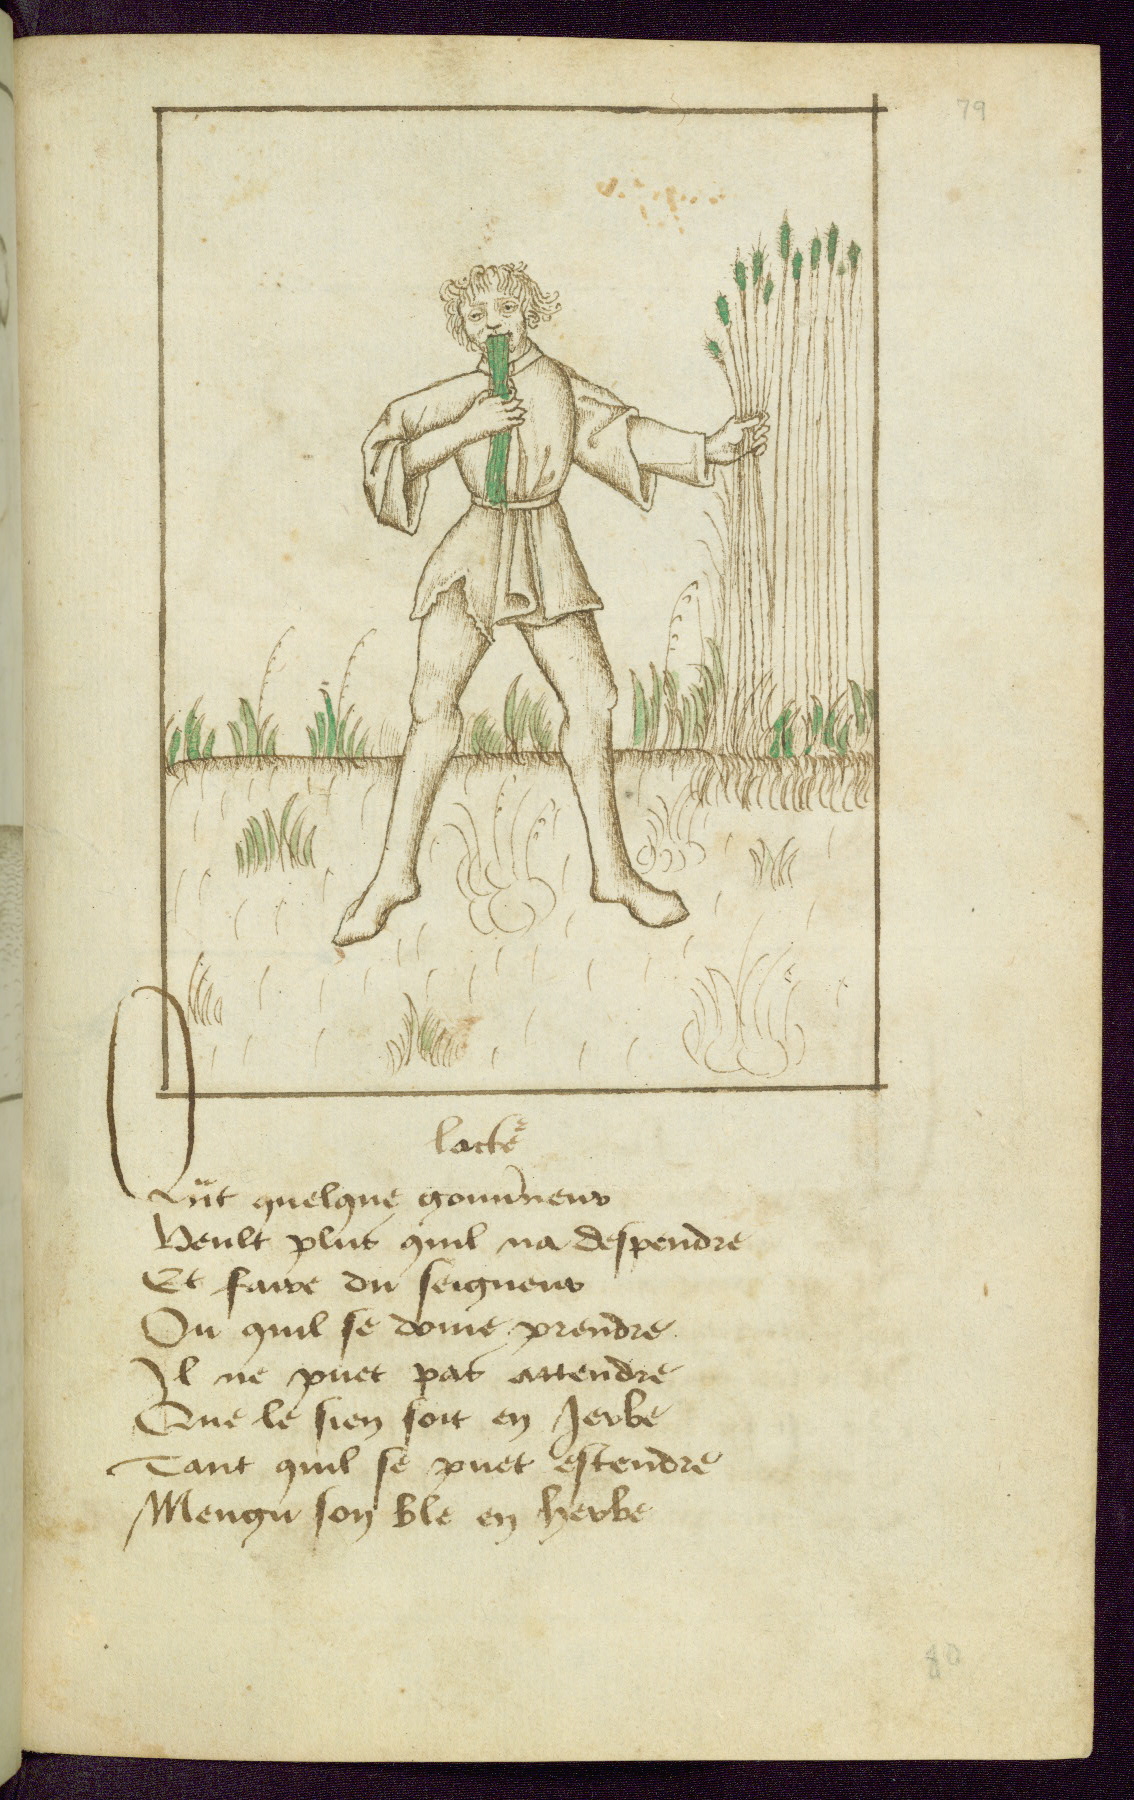 79
lacte
Qu͂t quelque gouu͂neur
Veult plus quil na despendre
Et faire du seigneur
Ou quil se doiue prendre
Il ne puet pas attendre
Que le sien soit en Jerbe
Tant quil se puet estendre
Mengu son ble en herbe
80